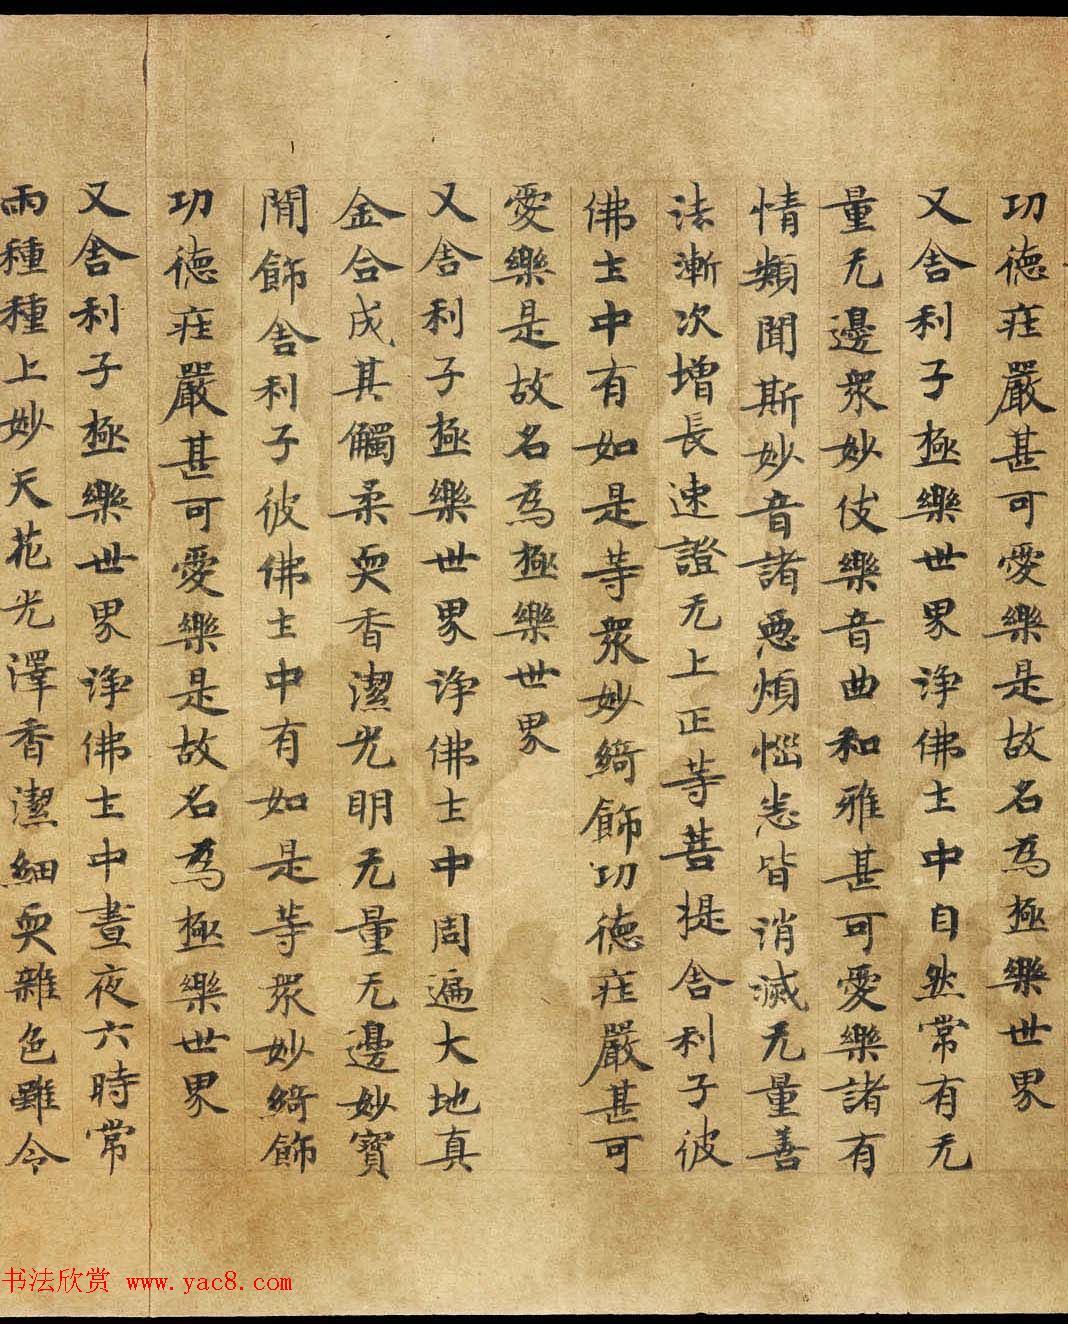 功德莊嚴甚可愛樂是故名為極樂世界
又舍利子極樂世界淨佛土中自然常有无
量无邊眾妙伎樂音曲和雅甚可愛樂諸有
情類聞斯妙音諸惡煩惱悉皆消滅无量善
法漸次增長速證无上正等菩提舍利子彼
佛土中有如是等眾妙綺飾功德莊嚴甚可
愛樂是故名為極樂世界
又舍利子極樂世界淨佛土中周遍大地真
金合成其觸柔耎香潔光明无量无邊妙寶
閒飾舍利子彼佛土中有如是等眾妙綺飾
功德莊嚴甚可愛樂是故名為極樂世界
又舍利子極樂世界淨佛土中晝夜六時常
雨種種上妙天花光澤香潔細耎雜色雖令
书法欣赏 www.yac8.com